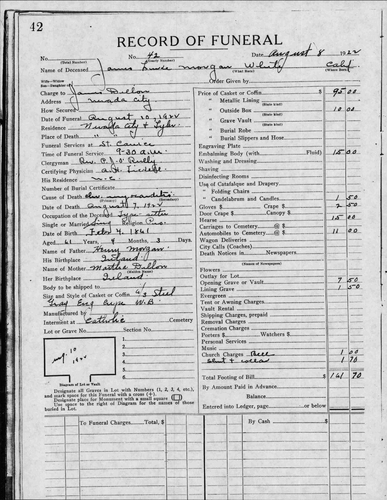 42
RECORD OF FUNERAL
No. 42 Date August 8 1922
(Total Number) (Yearly Number)
Name of Deceased James Morgan White Calif
(What Race) (Where Born)
Charge to James Dillon
Address Nevada City
How Secured
Date of Funeral August 10, 1922
Residence Nevada City
Place of Death
Funeral Services at St. Canice
Time of Funeral Service 9-30 a.m.
Clergyman Rev. P. J. O'Reilly
Certifying Physician
His Residence N.C.
Number of Burial Certificate
Cause of Death
Date of Death August 7, 1922
Occupation of the Deceased
Single or Married Religion
Date of Birth Feby 4, 1861
Aged 61 Years, Months, 3 Days
Name of Father Morgan
His Birthplace Ireland
Name of Mother Dillon
Her Birthplace Ireland
Body to be shipped to
Size and Style of Casket or Coffin
Gray
Manufactured by
Interment at Catholic Cemetery
Lot or Grave No. Section No.
1.
2.
3.
4.
5.
6.
7.
Diagram of Lot or Vault
Designate all Graves in Lot with Numbers (1, 2, 3, 4, etc.),
and mark space for this Funeral with a cross (+)
Designate place for Monument with a small square
Use space to the right of Diagram for the names of those
buried in Lot.
Order Given by
Price of Casket or Coffin $ 95 00
" Metallic Lining
" Outside Box 10 00
" Grave Vault
" Burial Robe
" Burial Slippers and Hose
Engraving Plate
Embalming Body (with Fluid) 15 00
Washing and Dressing
Shaving
Disinfecting Rooms
Use of Catafalque and Drapery
" Folding Chairs
" Candelabrum and Candles 1 50
Gloves $ Crape $ 2 50
Door Crape Canopy
Hearse 15 00
Carriages to Cemetery @ $
Automobiles to Cemetery @ $ 11 00
Wagon Deliveries
City Calls (Coaches)
Death Notices in Newspapers
(Names of Newspapers)
Flowers
Outlay for Lot
Opening Grave or Vault 7 50
Lining Grave 1 50
Evergreen
Tent or Awning Charges
Vault Rental
Shipping Charges, prepaid
Removal Charges
Cremation Charges
Porters $ Watchers $
Personal Services
Music
Church Charges 1 00
Shirt & collar 1 70
Total Footing of Bill $ 161 70
By Amount Paid in Advance
Balance
Entered into Ledger, page or below
To Funeral Charges, Total, $
By Cash $